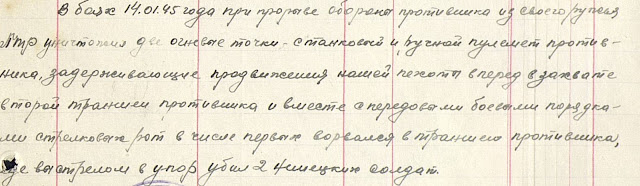 В боях 14.01.45 года при прорыве обороны противника из своего ружья
ПТР уничтожил две огневые точки - станковый и ручной пулемет против-
ника, задерживающие продвижения нашей пехоты вперед в захвате
второй траншеи противника и вместе с передовыми боевыми порядка-
ми стрелковых рот в числе первых ворвался в траншею противника,
где выстрелом в упор убил 2 немецких солдат.